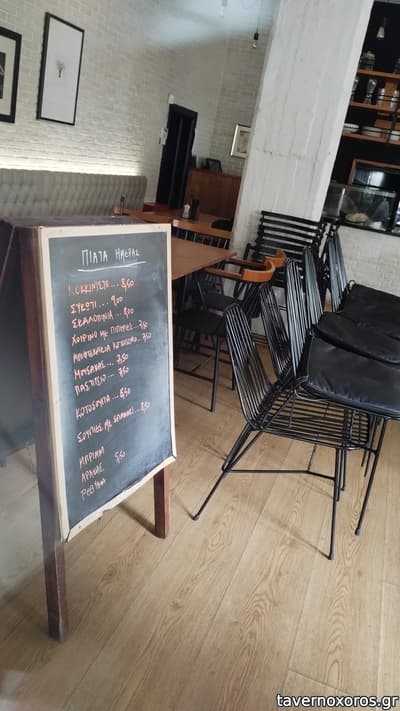 ΠΙΑΤΑ ΗΜΕΡΑΣ
ΚΟΚΚΙΝΙΣΤΟ.... 8,50
ΣΥΚΩΤΙ.... 9,00
ΣΚΑΛΟΠΙΝΙΑ ... 8,00
ΧΟΙΡΙΝΟ ΜΕ ΠΙΠΕΡΙΕΣ..7,50
ΚΟΤΟΠΟΥΛΟ.. 7,50
ΜΟΥΣΑΚΑΣ... 7,50
ΠΑΣΤΙΤΣΙΟ... 7,50
ΚΟΤΟΣΟΥΠΑ ... 6,50
ΣΟΥΠΙΕΣ ΜΕ ΣΠΑΝΑΚΙ.. 8,50
ΜΑΡΙΔΑ
ΑΡΑΚΑΣ 5,50
ΡΕΒΥΘΙΑ
tavernoxoros.gr